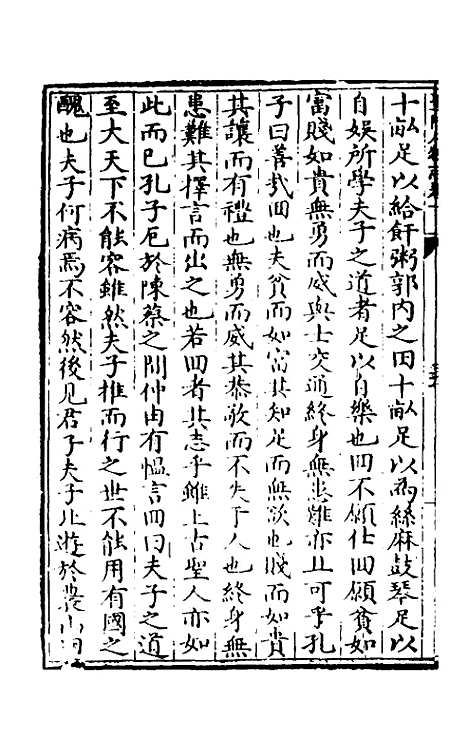 十畝足以給飦粥郭内之田十畝足以為絲麻鼓琴足以
自娛所學夫子之道者足以自樂也回不願仕回願貧如
富賤如貴無勇而威與士交通終身無患難亦且可乎孔
子曰善哉回也夫貧而如富其知足而無欲也賤而如貴
其讓而有禮也無勇而威其恭敬而不失于人也終身無
患難其擇言而出之也若回者其志乎雖上古聖人亦如
此而已孔子厄於陳蔡之間仲由有慍言回曰夫子之道
至大天下不能容雖然夫子推而行之世不能用有國之
醜也夫子何病焉不容然後見君子夫子北遊於農山